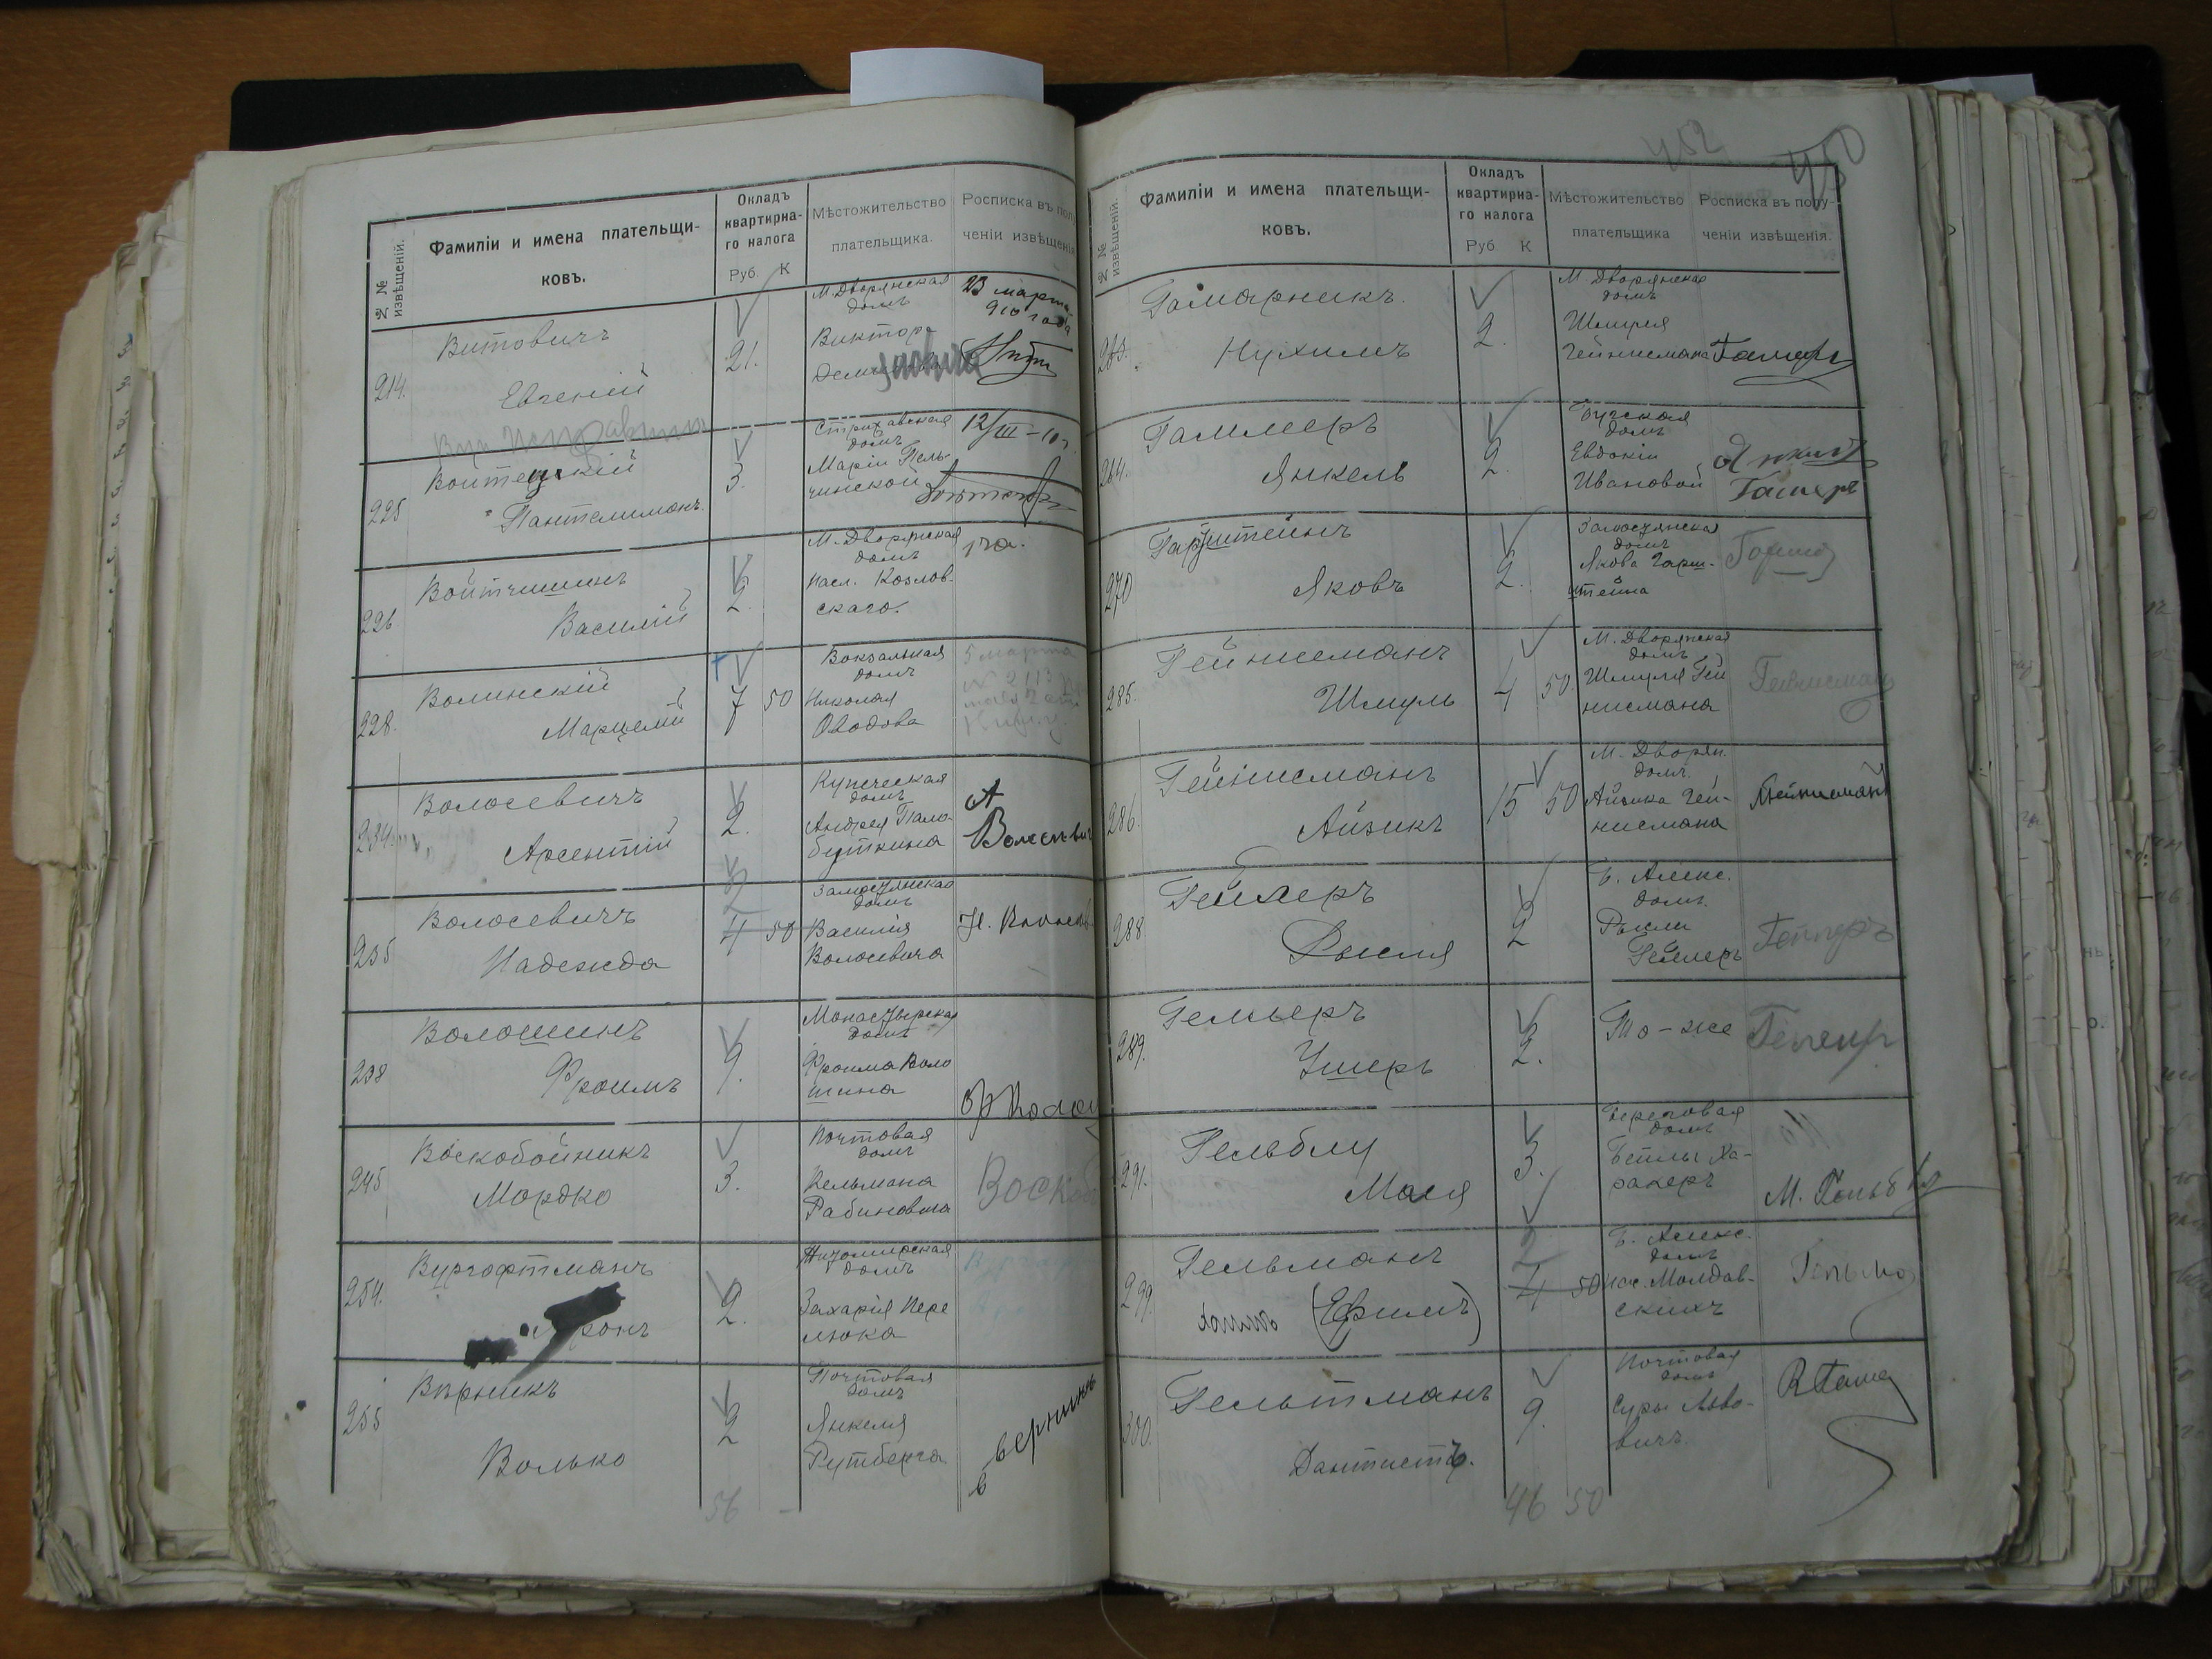 № № извѣщеній.
Фамиліи и имена плательщи-
ковъ.
Окладъ
квартирна-
го налога
Руб. К
Мѣстожительство
плательщика.
Росписка въ полу-
ченіи извѣщенія
214.
Витовичъ
Евгеній
21.
М. Дворянская
домъ
Виктора
23 марта
910 года
225
Войтецкій
Пантелимонъ.
3.
Стрижавская
домъ
Маріи Пель-
чинской
12/III-10 г.
226.
Войтишинъ
Василій
2.
М. Дворянская
домъ
насл. Козлов-
скаго.
228.
Волинскій
Марцелій
7 50
Вокзальная
домъ
Николая
Оводова
5 марта
234.
Волосевичъ
Арсентій
2.
Купеческая
домъ
Андрея Пало-
буткина
А
235
Волосевичъ
Надежда
2
4 50
Замостянская
домъ
Василія
Волосевича
238
Волошинъ
Фроимъ
9.
Монастырская
домъ
Фроима Воло
шина
245
Воскобойникъ
Мордко
3.
Почтовая
домъ
Кельмана
Рабиновича
Воскоб
254.
Вургафтманъ
Аронъ
2.
Житомирская
домъ
Захарія Пере
люка
255
Вѣрникъ
Волько
2
Почтовая
домъ
Янкеля
Рутберга
в верникъ
56 -
452
450
№ № извѣщеній.
Фамиліи и имена плательщи-
ковъ.
Окладъ
квартирна-
го налога
Руб К
Мѣстожительство
плательщика
Росписка въ полу-
ченіи извѣщенія.
263.
Гамарникъ.
Нухимъ
2.
М. Дворянская
домъ
Шмуля
Гейнисмана
264.
Гаммеръ
Янкель
2.
Бугская
домъ
Евдокіи
Ивановой
270
Гарштейнъ
Яковъ
2.
Замостянская
домъ
Якова Гарш-
штейна
285.
Гейнисманъ
Шмуль
4 50.
М. Дворянская
домъ
Шмуля Гей
нисмана
Гейнисман
286.
Гейнисманъ
Айзикъ
15 50
М. Дворян.
домъ.
Айзика Гей-
нисмана
288
Геллеръ
Рысля
2
Б. Алекс.
домъ.
Рысли
Геллеръ
289.
Гельеръ
Ушеръ
2.
То-же
291.
Гельблу
Мася
3.
Береговая
домъ
Бейлы Ха-
ракеръ
299.
Гельманъ
(Ефимъ)
2
4 50
Б. Алекс.
домъ
нас. Молдав-
скихъ
300.
Гельтманъ
Дантистъ.
9.
Почтовая
домъ
Суры Льво-
вичъ.
46 50